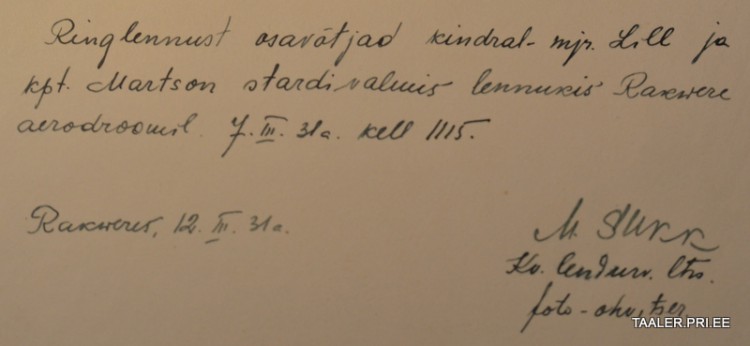 Ringlennust osavõtjad kindral-mjr. Lill ja
kpt. Martson stardivalmis lennukis Rakwere
aerodroomil. 7. III. 31a. kell 1115.
Rakweres, 12. III. 31a.
M. SUKK
Kv. lenduv. ltn.
foto-ohvitser
TAALER.PRI.EE